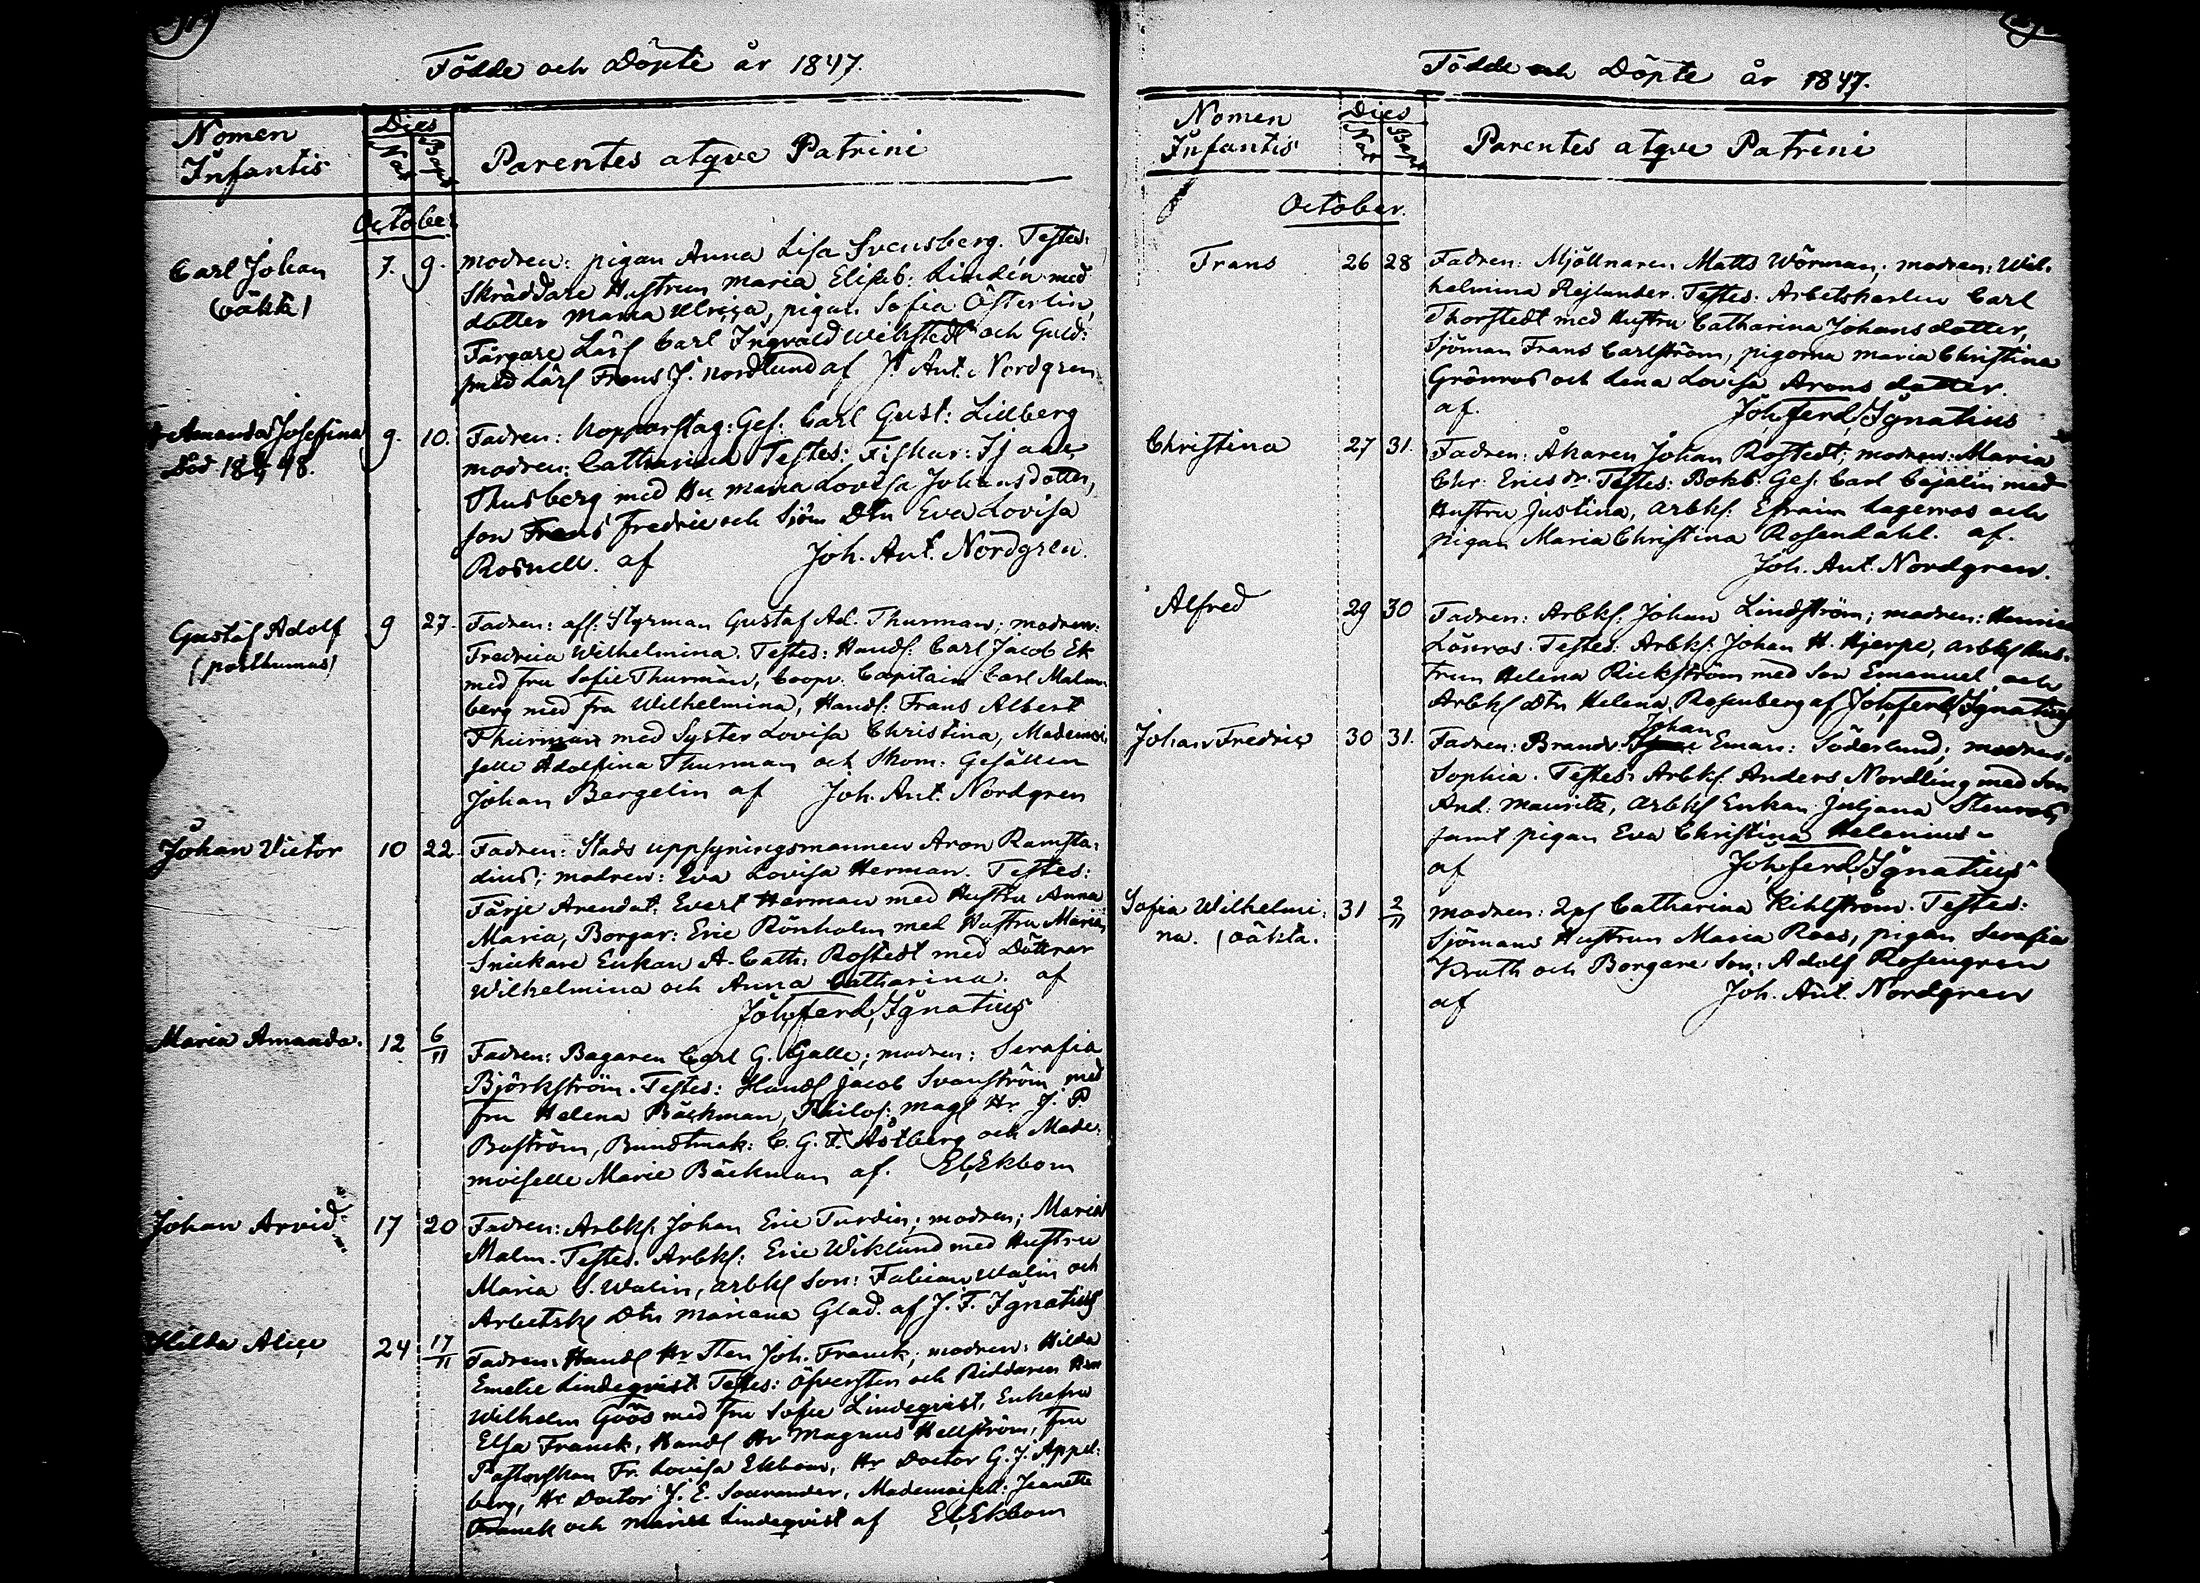 Födde och Döpte år 1847.
Nomen Infantis
Dies
Nat
Bapt
Parentes atqve Patrini
October
Carl Johan
(oäkta)
7. 9.
modren: pigan Anna Lisa Svensberg. Testes:
Skräddare Hustrun Maria Elisab: Lindén med
dotter Maria Ulrica, pigan Sofia Österlin,
Färgare Lärl Carl Ingvald Wikstedt och Guld:
smed Lärl Frans J. Nordlund af J. Ant. Nordgren
Amanda Josefina
Död 18 48.
9. 10.
Fadren: Kopparslag: Ges: Carl Gust: Lillberg
modren: Catharina Testes: Fiskar:
Thusberg med Hu Maria Lovisa Johansdotter,
son Frans Fredric och Sjöm Dtn Eva Lovisa
Rosnell. af Joh. Ant. Nordgren.
Gustaf Adolf
(posthumus)
9 27.
Fadren: afl: Styrman Gustaf Ad. Thurman; modren:
Fredrica Wilhelmina. Testes: Handl: Carl Jacob Ek
med fru Sofie Thurman, Coopv. Capitain Carl Malm-
berg med fru Wilhelmina, Handl: Frans Albert
Thurman med Syster Lovisa Christina, Mademoi-
selle Adolfina Thurman och Skom: Gesällen
Johan Bergelin af Joh. Ant. Nordgren
Johan Victor
10 22.
Fadren: Stads uppsyningsmannen Aron Ramsta-
dius; modren: Eva Lovisa Herman. Testes:
Färje Arendat: Evert Herman med Hustru Anna
Maria, Borgar: Eric Rönholm med Hustru Maria,
Snickare Enkan A. Cath: Rostedt med Döttrar
Wilhelmina och Anna Catharina: af
Joh. Ferd. Ignatius
Maria Amanda.
12 6/11
Fadren: Bagaren Carl G. Galle; modren: Serafia
Björkström. Testes: Handl Jacob Svanström med
fru Helena Bäckman, Philos: Mag Hr J. P.
Boström, Buntmak: C. G. F. Åstberg och Made-
moiselle Marie Bäckman af. Ekbom
Johan Arvid
17 20
Fadren: Arbks: Johan Eric Turdin; modren; Maria
Malm. Testes. Arbks: Eric Wiklund med Hustru
Maria S. Walin, arbks Son: Fabian Walin och
Arbetsk Dtn Mariana Glad. af J. F. Ignatius
Hilda Alice
24 17/11
Fadren: Handl Hr Sten Joh. Franck; modren: Hilda
Emelie Lindeqvist Testes: Öfversten och Riddaren Herr
Wilhelm Göös med fru Sofie Lindeqvist, Enkefru
Elsa Franck, Handl Hr Magnus Hellström, Fru
Pastorskan Fr. Lovisa Ekbom, Hr Doctor G. J. Appel-
berg, Hr Doctor J. E. Savander, Mademoisell: Jeanette
Franck och Marie Lindeqvist af Ekbom
Födde och Döpte år 1847.
Nomen Infantis
Dies
Nat
Bapt
Parentes atqve Patrini
October.
Frans
26 28
Fadren: Mjöllnaren Matts Wörman; modren: Wil-
helmina Rejlander. Testes. Arbetskarlen Carl
Thorstedt med Hustru Catharina Johansdotter,
Sjöman Frans Carlström, pigorna Maria Christina
Grönroos och Lena Lovisa Aronsdotter.
af. Joh. Ferd. Ignatius
Christina
27 31.
Fadren: Åkaren Johan Rostedt; modren: Maria
Chr: Ericsdr. Testes: Bokb: Ges: Carl Cajalin med
Hustru Justina, arbks: Efraim Lagerroos och
pigan Maria Christina Rosendahl. af.
Joh. Ant. Nordgren.
Alfred
29 30
Fadren: Arbks: Johan Lindström; modren: Henrica
Lönroos. Testes: Arbks: Johan H. Hjerpe, arbks Hus-
trun Helena Rickström med Son Emanuel, och
Arbks Dtn Helena Rosenberg af Joh. Ferd. Ignatius
Johan Fredric
30 31.
Fadren: Brandv: Johan Eman: Söderlund; modren:
Sophia. Testes: Arbks. Anders Nordling med Son
And: Mauritz, arbks Enkan Juljana Stenroos,
samt pigan Eva Christina Helenius
af Joh. Ferd. Ignatius
Sofia Wilhelmi-
na. (oäkta.
31 2/11
modren: Catharina Kihlström. Testes:
Sjömans Hustrun Maria Roos, pigan Serafia
Kruth och Borgare Son: Adolf Rosengren
af Joh. Ant. Nordgren